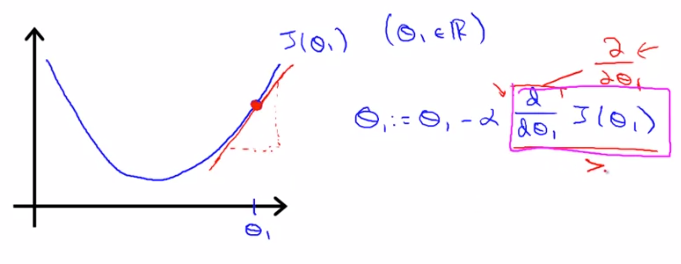 J(θ₁) (θ₁ ∈ ℝ)
∂/∂θ₁ ←
θ₁ := θ₁ - α d/dθ₁ J(θ₁)
>
θ₁